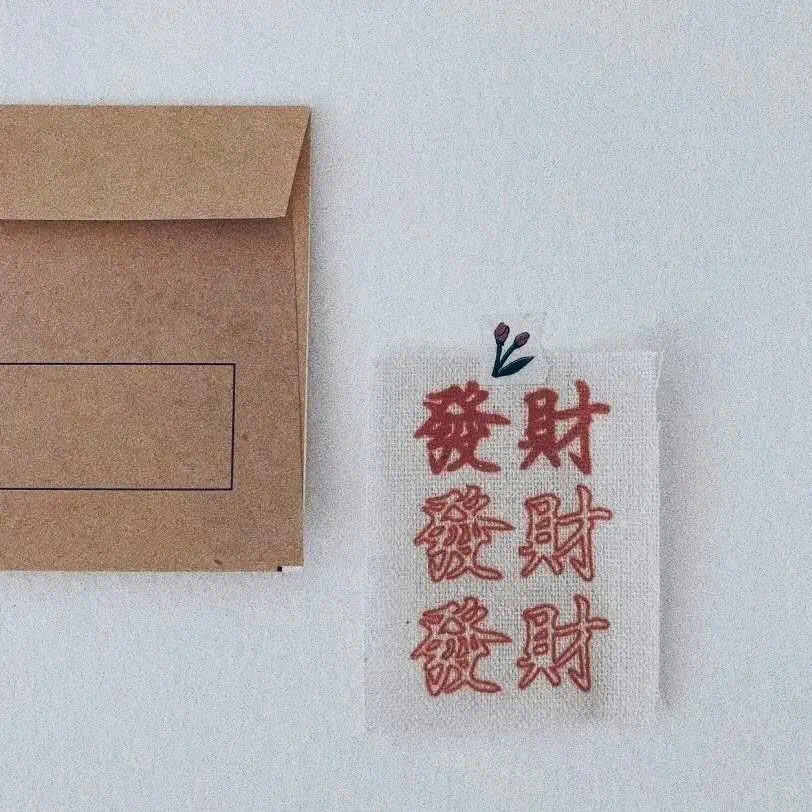 發財
發財
發財